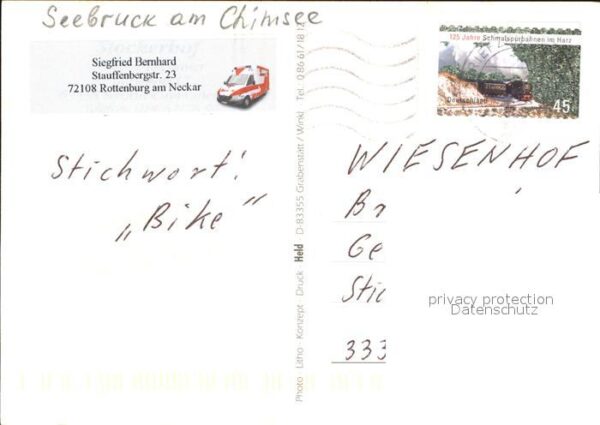 Seebruck am Chimsee
Siegfried Bernhard
Stauffenbergstr. 23
72108 Rottenburg am Neckar
125 Jahre Schmalspurbahnen im Harz
Deutschland
45
Stichwort!
„Bike"
Photo · Litho · Konzept · Druck · Held · D-83355 Grabenstätt / Winkl · Tel. 0 86 61 / 18 14
WIESENHOF
Br
Ge
Stic
333
privacy protection
Datenschutz